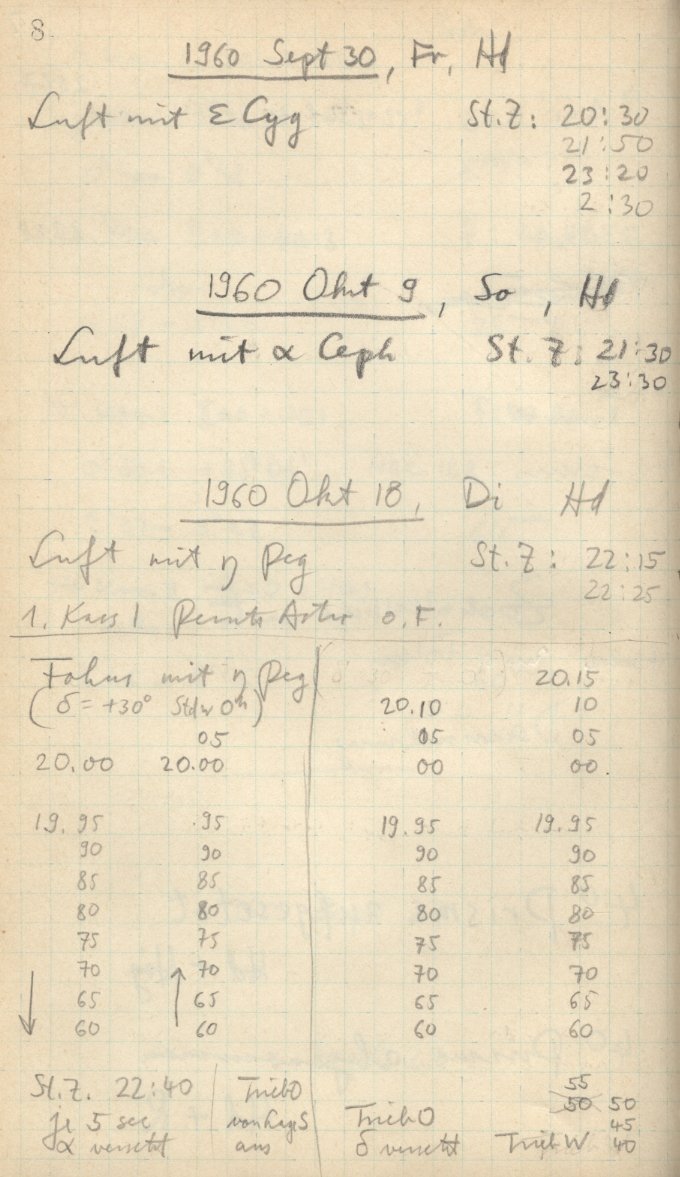 8
1960 Sept 30, Fr, Hd
Luft mit ε Cyg St.Z: 20:30
21:50
23:20
2:30
1960 Okt 9, So, Hd
Luft mit α Ceph St.Z: 21:30
23:30
1960 Okt 18, Di Hd
Luft mit η Peg St.Z: 22:15
22:25
1. Kass I Astro o.F.
Fokus mit η Peg 20.15
(δ = +30° Stdw 0h) 20.10 10
05 05 05
20.00 20.00 00 00
19.95 .95 19.95 19.95
90 90 90 90
85 85 85 85
80 80 80 80
75 75 75 75
70 70 70 70
65 65 65 65
60 60 60 60
55
St.Z. 22:40 Trieb O 50 50
je 5 sec von Lage S Trieb O 45
α versetzt aus δ versetzt Trieb W 40